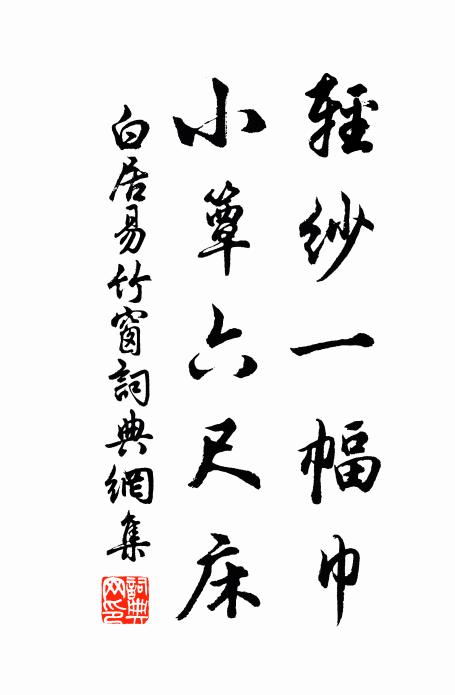 輕紗一幅巾
小簟六尺床
白居易竹窗詞典網集
詞典
网印